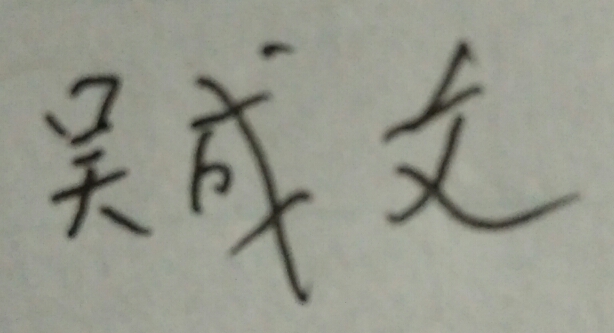 吴成文